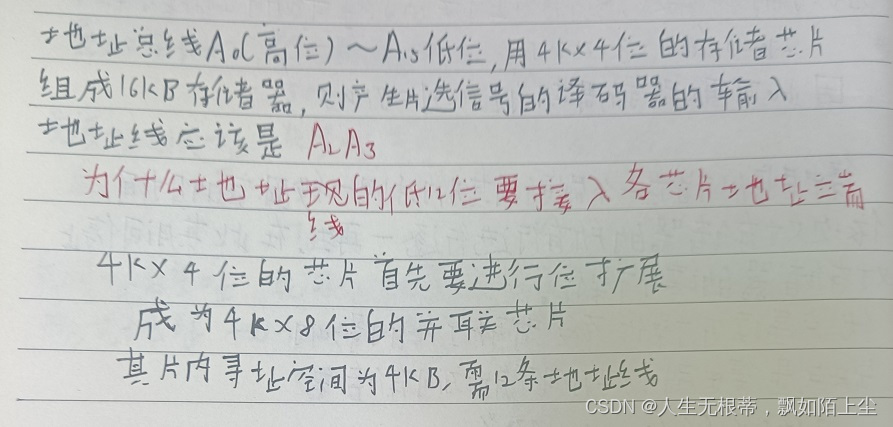 地址总线A₀(高位)~A₁₅低位,用4K×4位的存储器芯片
组成16KB存储器,则产生片选信号的译码器的输入
地址线应该是 A₂A₃
为什么地址现的低12位要接入各芯片地址端
线
4K×4位的芯片首先要进行位扩展
成为4K×8位的并联芯片
其片内寻址空间为4KB,需12条地址线
CSDN @人生无根蒂,飘如陌上尘